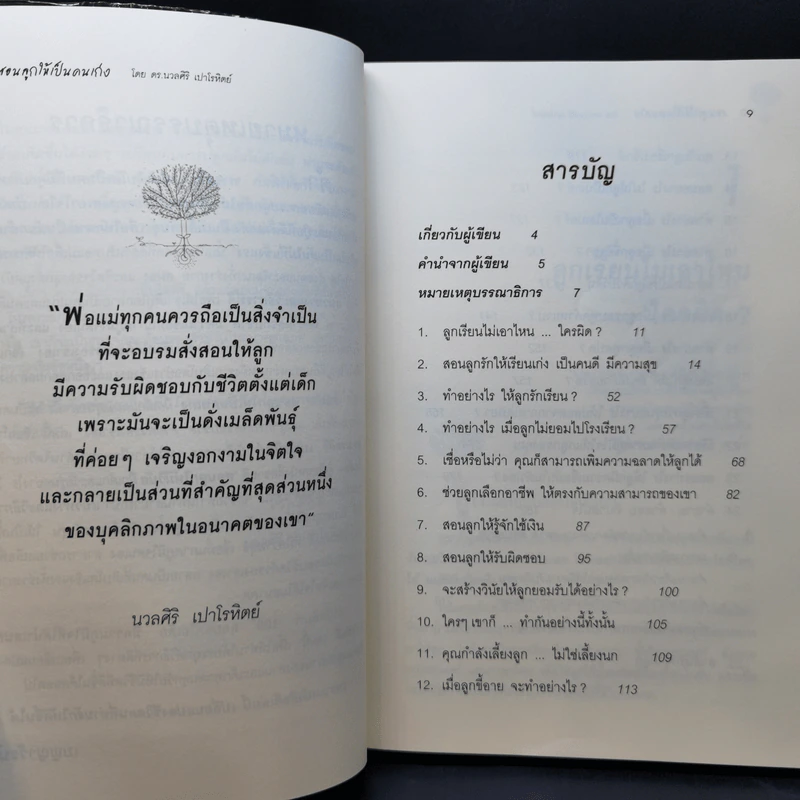 สอนลูกให้เป็นคนเก่ง โดย ดร.นวลศิริ เปาโรหิตย์
"พ่อแม่ทุกคนควรถือเป็นสิ่งจำเป็น
ที่จะอบรมสั่งสอนให้ลูก
มีความรับผิดชอบกับชีวิตตั้งแต่เด็ก
เพราะมันจะเป็นดั่งเมล็ดพันธุ์
ที่ค่อยๆ เจริญงอกงามในจิตใจ
และกลายเป็นส่วนที่สำคัญที่สุดส่วนหนึ่ง
ของบุคลิกภาพในอนาคตของเขา"
นวลศิริ เปาโรหิตย์
9
สารบัญ
เกี่ยวกับผู้เขียน 4
คำนำจากผู้เขียน 5
หมายเหตุบรรณาธิการ 7
1. ลูกเรียนไม่เอาไหน ... ใครผิด ? 11
2. สอนลูกรักให้เรียนเก่ง เป็นคนดี มีความสุข 14
3. ทำอย่างไร ให้ลูกรักเรียน ? 52
4. ทำอย่างไร เมื่อลูกไม่ยอมไปโรงเรียน ? 57
5. เชื่อหรือไม่ว่า คุณก็สามารถเพิ่มความฉลาดให้ลูกได้ 68
6. ช่วยลูกเลือกอาชีพ ให้ตรงกับความสามารถของเขา 82
7. สอนลูกให้รู้จักใช้เงิน 87
8. สอนลูกให้รับผิดชอบ 95
9. จะสร้างวินัยให้ลูกยอมรับได้อย่างไร ? 100
10. ใครๆ เขาก็ ... ทำกันอย่างนี้ทั้งนั้น 105
11. คุณกำลังเลี้ยงลูก ... ไม่ใช่เลี้ยงนก 109
12. เมื่อลูกขี้อาย จะทำอย่างไร ? 113